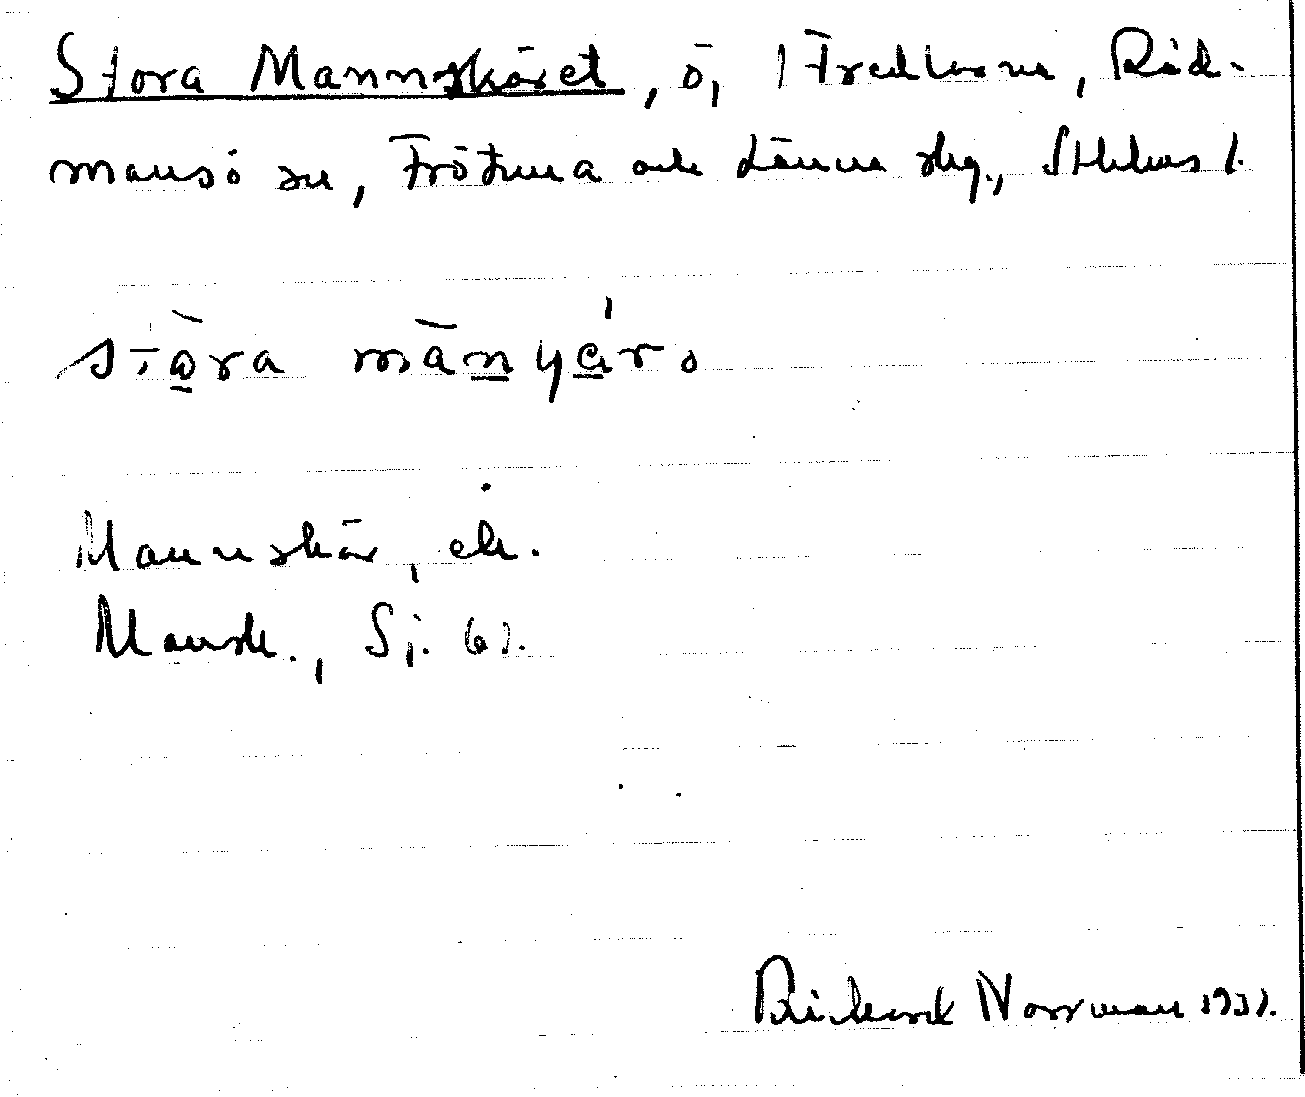 Stora Mannskäret, ö, i Fredlarna, Råd-
mansö sn, Frötuna och Länna skg., Sthlms l.
stòra mànɥár
Mannskär, ek.
Mansk., Sj.
Rickard Norrman